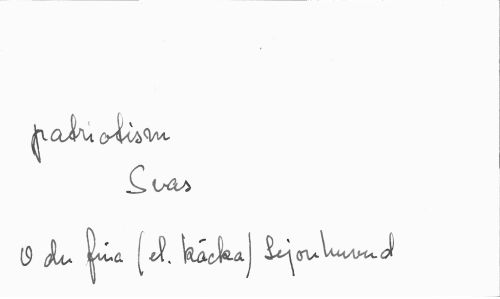 patriotism
Svas
O du fina (el. käcka) Lejonhuvud